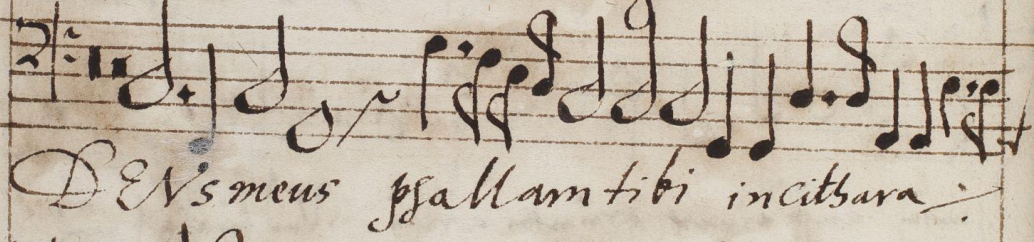 DENs meus psallam tibi in cithara